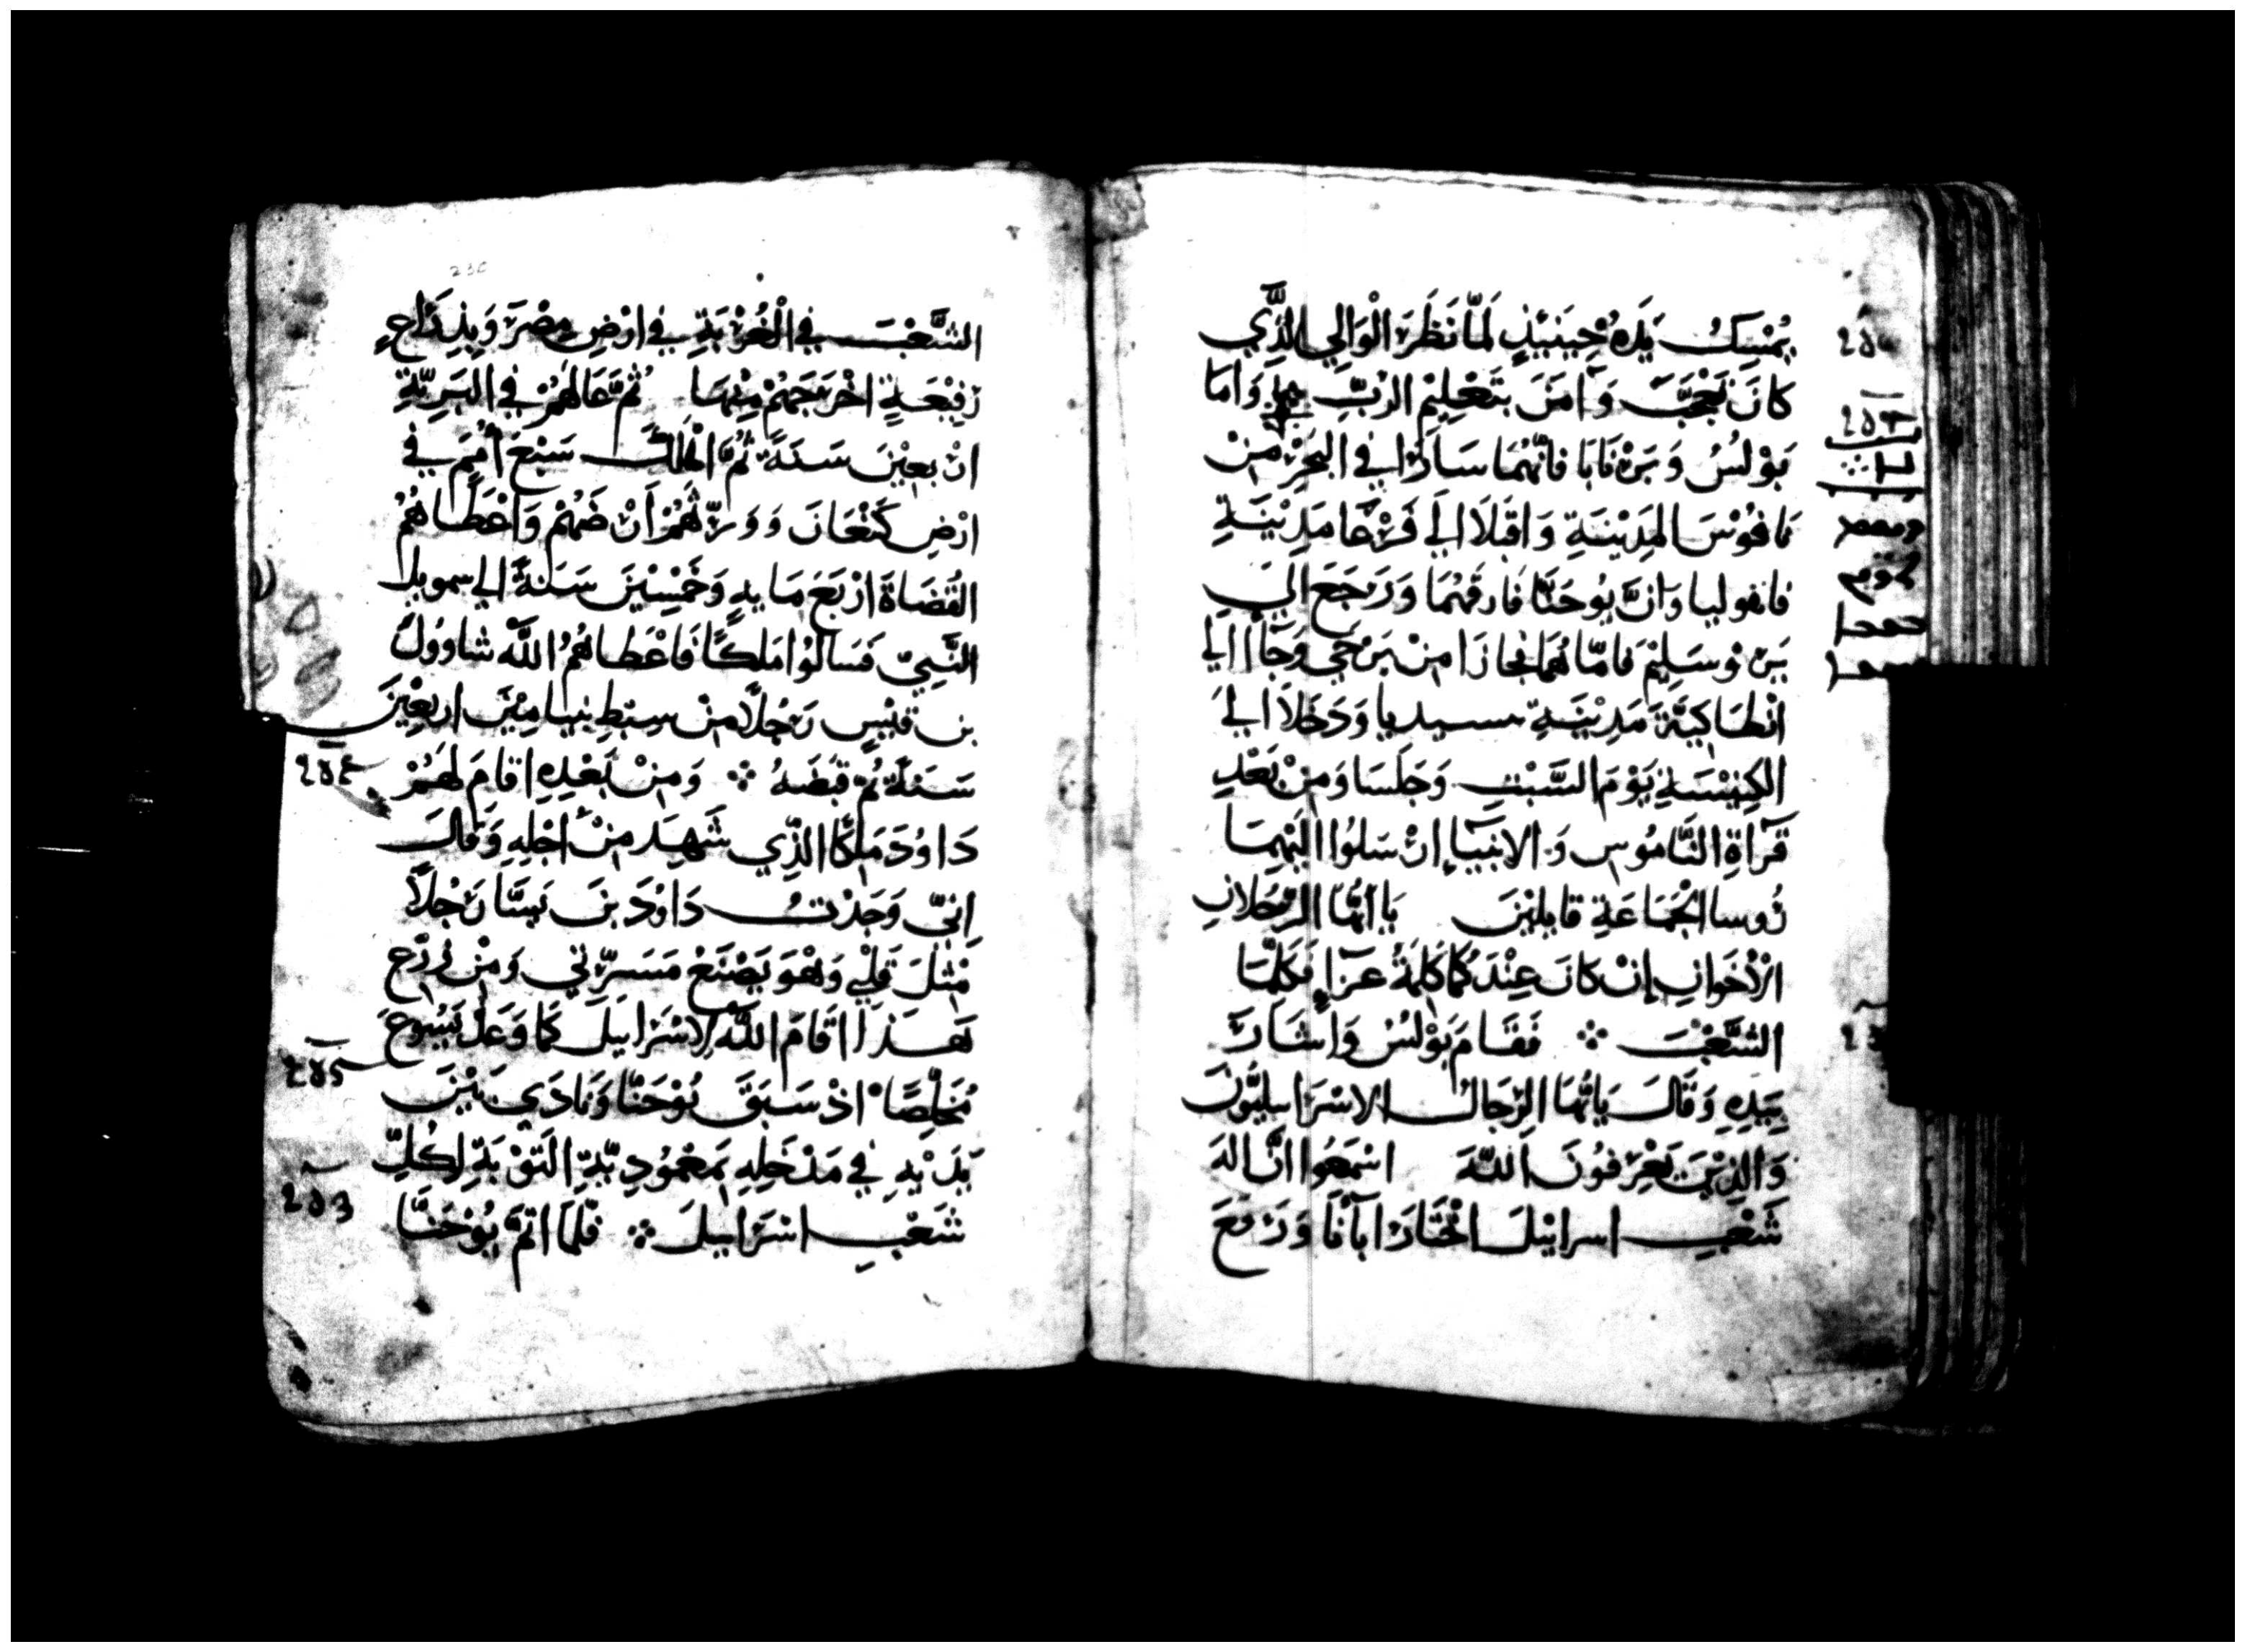 يُمْسِكُ يَدَهُ حِينَيْذٍ لَمَّا نَظَرَ الْوَالِي الَّذِي
كَانَ تَعَجَّبَ وَآمَنَ بتَعْلِيْمِ الرَّبِّ وَامَا
بَوْلسُ وَبَرْنَابَا فَانَّهُمَا سَارَا فِي البَحْرِ مِنْ
نَافُوْسَ المَدِيْنَةِ وَاقْبَلَا الَي فَرْغَا مَدِيْنَةِ
فانفوليا وَانَّ يُوحَنَّا فَارَقَهُمَا وَرَجَعَ الَي
يَرُوسَلِيْمَ فَامَّا هُمَا فجَازَا مِنْ بَرْجَي وَجَاآ الَي
انْطَاكِيَّةَ مَدِيْنَةِ سيديا وَدَخَلَا الَي
الكَنِيْسَةِ يَوْمَ السَّبْتِ وَجَلَسَا وَمِنْ بَعْدِ
قَرَاةِ النَّامُوْسِ وَالانبِيَاءِ ارْسَلُوا الَيْهِمَا
رُوسا الْجَمَاعَةِ قَايلِيْنَ يَا ايُّهَا الرَّجُلَانِ
الأَخَوَانِ إنْ كَانَ عِنْدَكُمَا كَلِمَةُ عَزَاءٍ فَكَلِّمَا
الشَّعْبَ ⁘ فَقَامَ بَوْلسُ وَاشَارَ
بِيَدِهِ وَقَالَ يَايُّهَا الرِّجَالُ الاسْرَاييليُّونَ
وَالذِيْنَ يَعْرِفُونَ اللَّهَ اسْمَعُوا انَّ الهَ
شَعْبِ اسراييْلَ اخْتَارَ ابآنَا وَرَفَعَ
الشَّعْبَ فِي الْغُرْبَةِ فِي ارْضِ مِصْرَ وَبِذِرَاعٍ
رَفِيْعَةٍ اخْرَجَهُمْ مِنْهَا ثُمَّ عَالَهُمْ فِي البَرِيَّةِ
ارْبعِيْنَ سَنَةً ثُمَّ اهْلَكَ سَبْعَ أُمَمٍ فِي
ارْضِ كَنْعَانَ وَوَرَّثَهُمْ ارْضَهُمْ وَاعْطَاهُمُ
القُضَاةَ ارْبَعَ مَايهٍ وَخَمْسِيْنَ سَنَةً الي سمويل
النَّبِيّ فَسَالُوْا مَلِكًا فَاعْطَاهُمُ اللَّه شاوُولَ
بن قَيْسٍ رَجُلًا مِنْ سِبْطِ بنيامِيْنَ اربعِيْنَ
سَنَةً ثُمَّ قبَضَهُ ⁘ وَمِنْ بَعْدِهِ اقامَ لَهُمْ
دَاوُدَ مَلِكًا الذِّي شَهِدَ مِنْ اجْلِهِ وَقَالَ
إنِيّ وَجَدْتُ دَاوُدَ بْنَ يَسَّا رَجُلاً
مِثْلَ قَلْبِي وَهُوَ يَصْنَعُ مَسَرَّتِي وَمِنْ زَرْعِ
هَذَا اقَامَ اللَّهُ لِاسْرَاييلَ كَمَا وَعَدَ يَسُوعَ
مُخَلِّصًا اذْ سَبَقَ يُوْحَنَّا وَنَادَي بَيْنَ
يَدَيْهِ فِي مَدْخَلِهِ بمَعْمُودِيَّةِ التَوْبَةِ لِكُلِّ
شَعْبِ اسْرَاييلَ ⁘ فَلَمَّا اتَمَّ يُوْحَنَّا